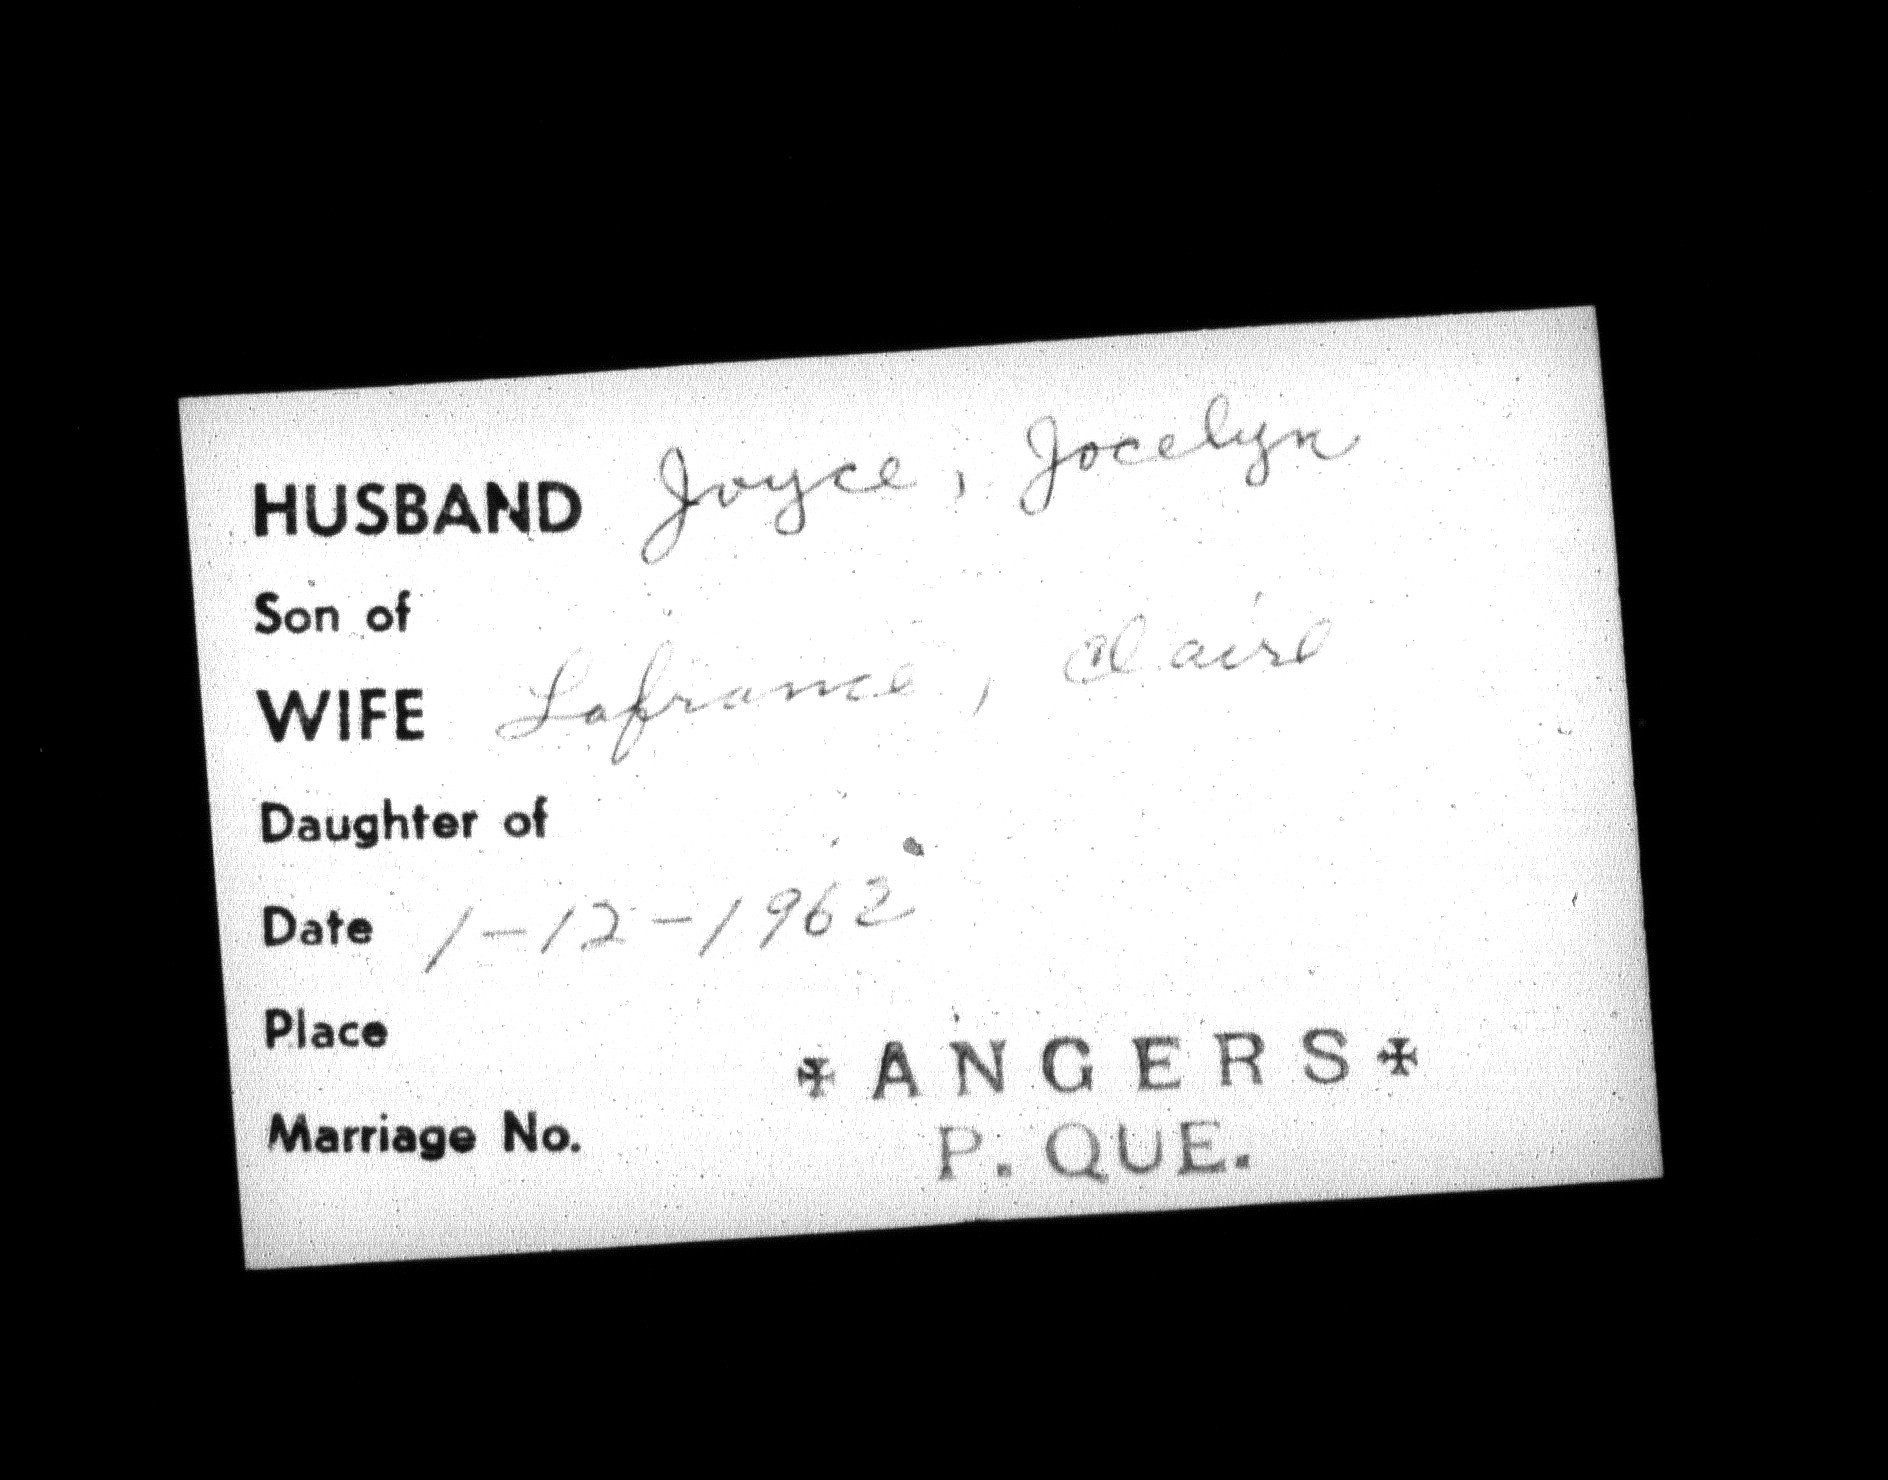 HUSBAND Joyce, Jocelyn
Son of
WIFE Lafrance, Claire
Daughter of
Date 1-12-1962
Place
✠ ANGERS ✠
Marriage No.
P. QUE.